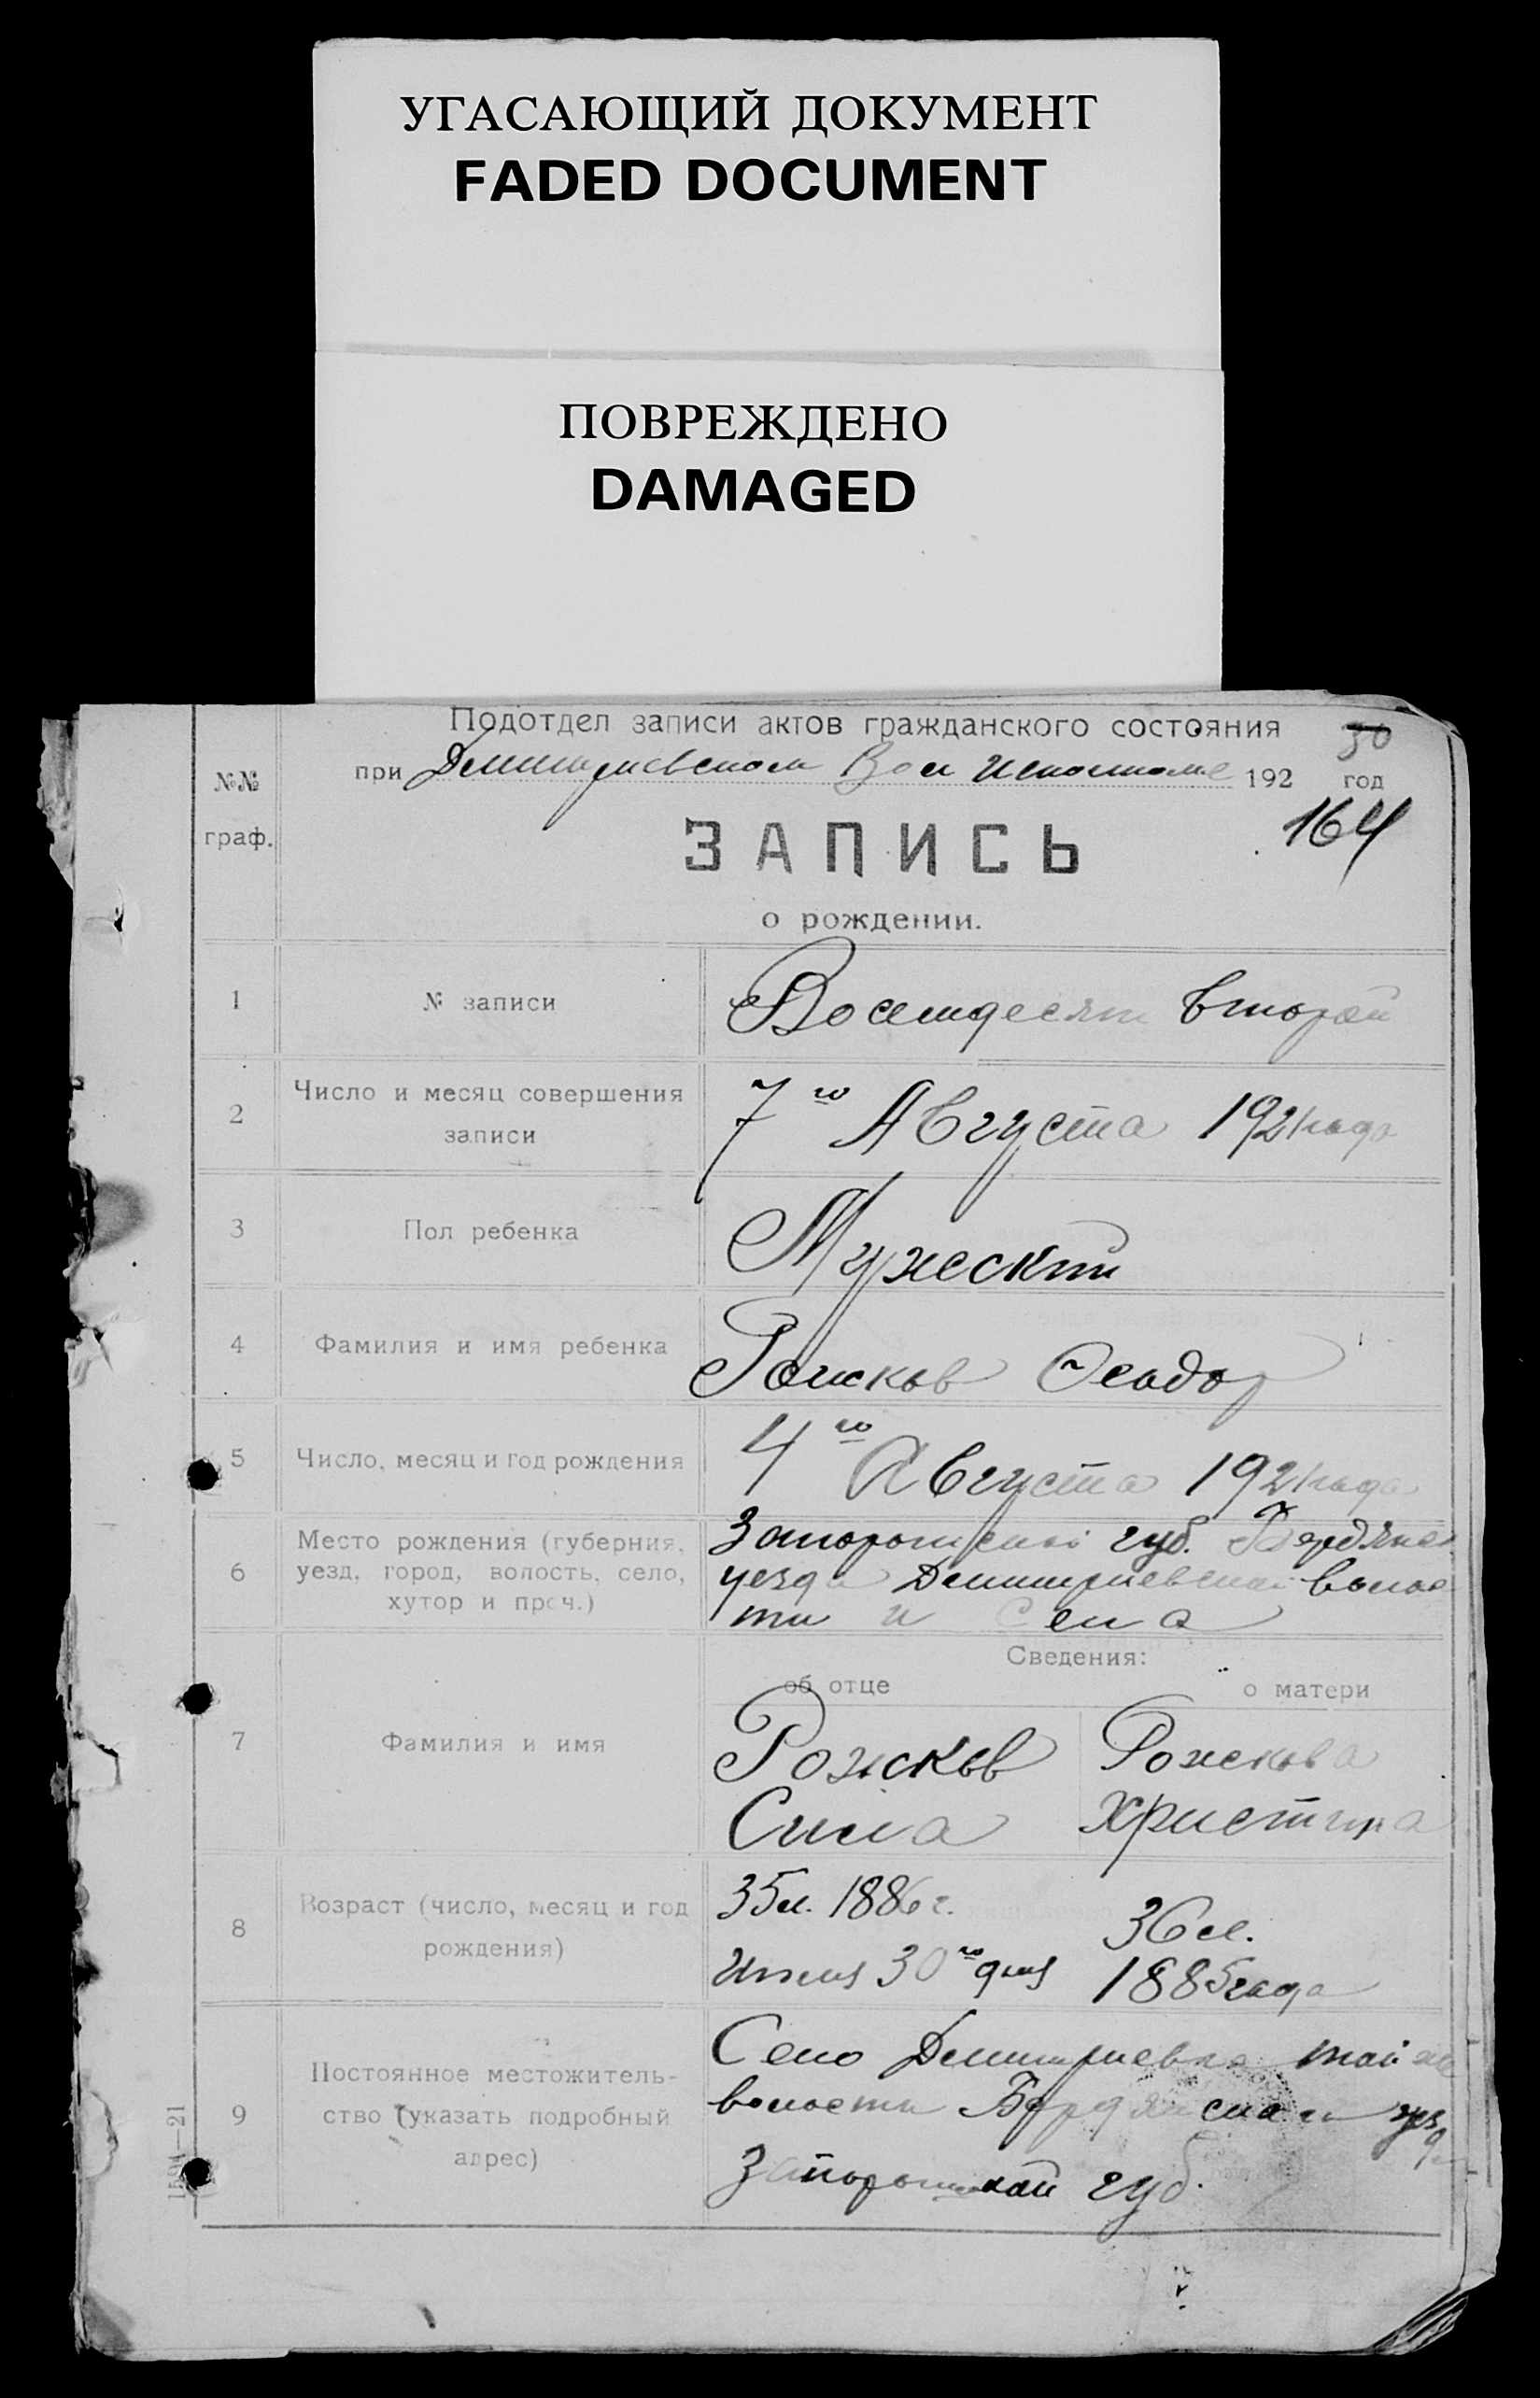 УГАСАЮЩИЙ ДОКУМЕНТ
FADED DOCUMENT
ПОВРЕЖДЕНО
DAMAGED
Подотдел записи актов гражданского состояния
30
№№ граф.
при Дмитриевском Вол Исполкоме 192 год
164
ЗАПИСЬ
о рождении.
1 № записи Восемдесят второй
2 Число и месяц совершения
записи
7го Августа 1921 года
3 Пол ребенка Мужеский
4 Фамилия и имя ребенка Рожков Феодор
5 Число, месяц и год рождения 4го Августа 1921 года
6 Место рождения (губерния,
уезд, город, волость, село,
хутор и проч.)
Запорожской губ. Бердянск
уезда Дмитриевской волос
ти и Села
Сведения:
об отце о матери
7 Фамилия и имя
Рожков Рожкова
Сила Христина
8 Возраст (число, месяц и год
рождения)
35 л. 1886 г. 36 л.
Июля 30го дня 1885 года
9 Постоянное местожитель-
ство (указать подробный
адрес)
Село Дмитриевка той же
волости Бердянского уезда
Запорожской губ.